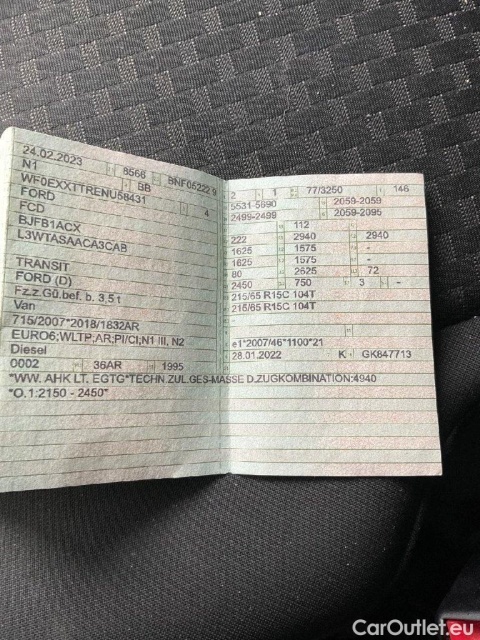 24.02.2023 8566 BNF05222 9
N1 1 BB
WF0EXXTTRENU58431
FORD 4
FCD
BJFB1ACX
L3WTASAACA3CAB
TRANSIT
FORD (D)
Fz.z.Gü.bef. b. 3,5 t
Van
715/2007*2018/1832AR
EURO6;WLTP;AR;PI/CI;N1 III, N2
Diesel
0002 36AR 1995
*WW. AHK LT. EGTG*TECHN.ZUL.GES-MASSE D.ZUGKOMBINATION:4940
*O.1:2150 - 2450*
2 1 77/3250 146
5531-5690 2059-2059
2499-2499 2059-2095
112
222 2940 2940
1625 1575 -
1625 1575 -
80 2625 72
2450 750 3 -
215/65 R15C 104T
215/65 R15C 104T
-
e1*2007/46*1100*21
28.01.2022 K GK847713
CarOutlet.eu